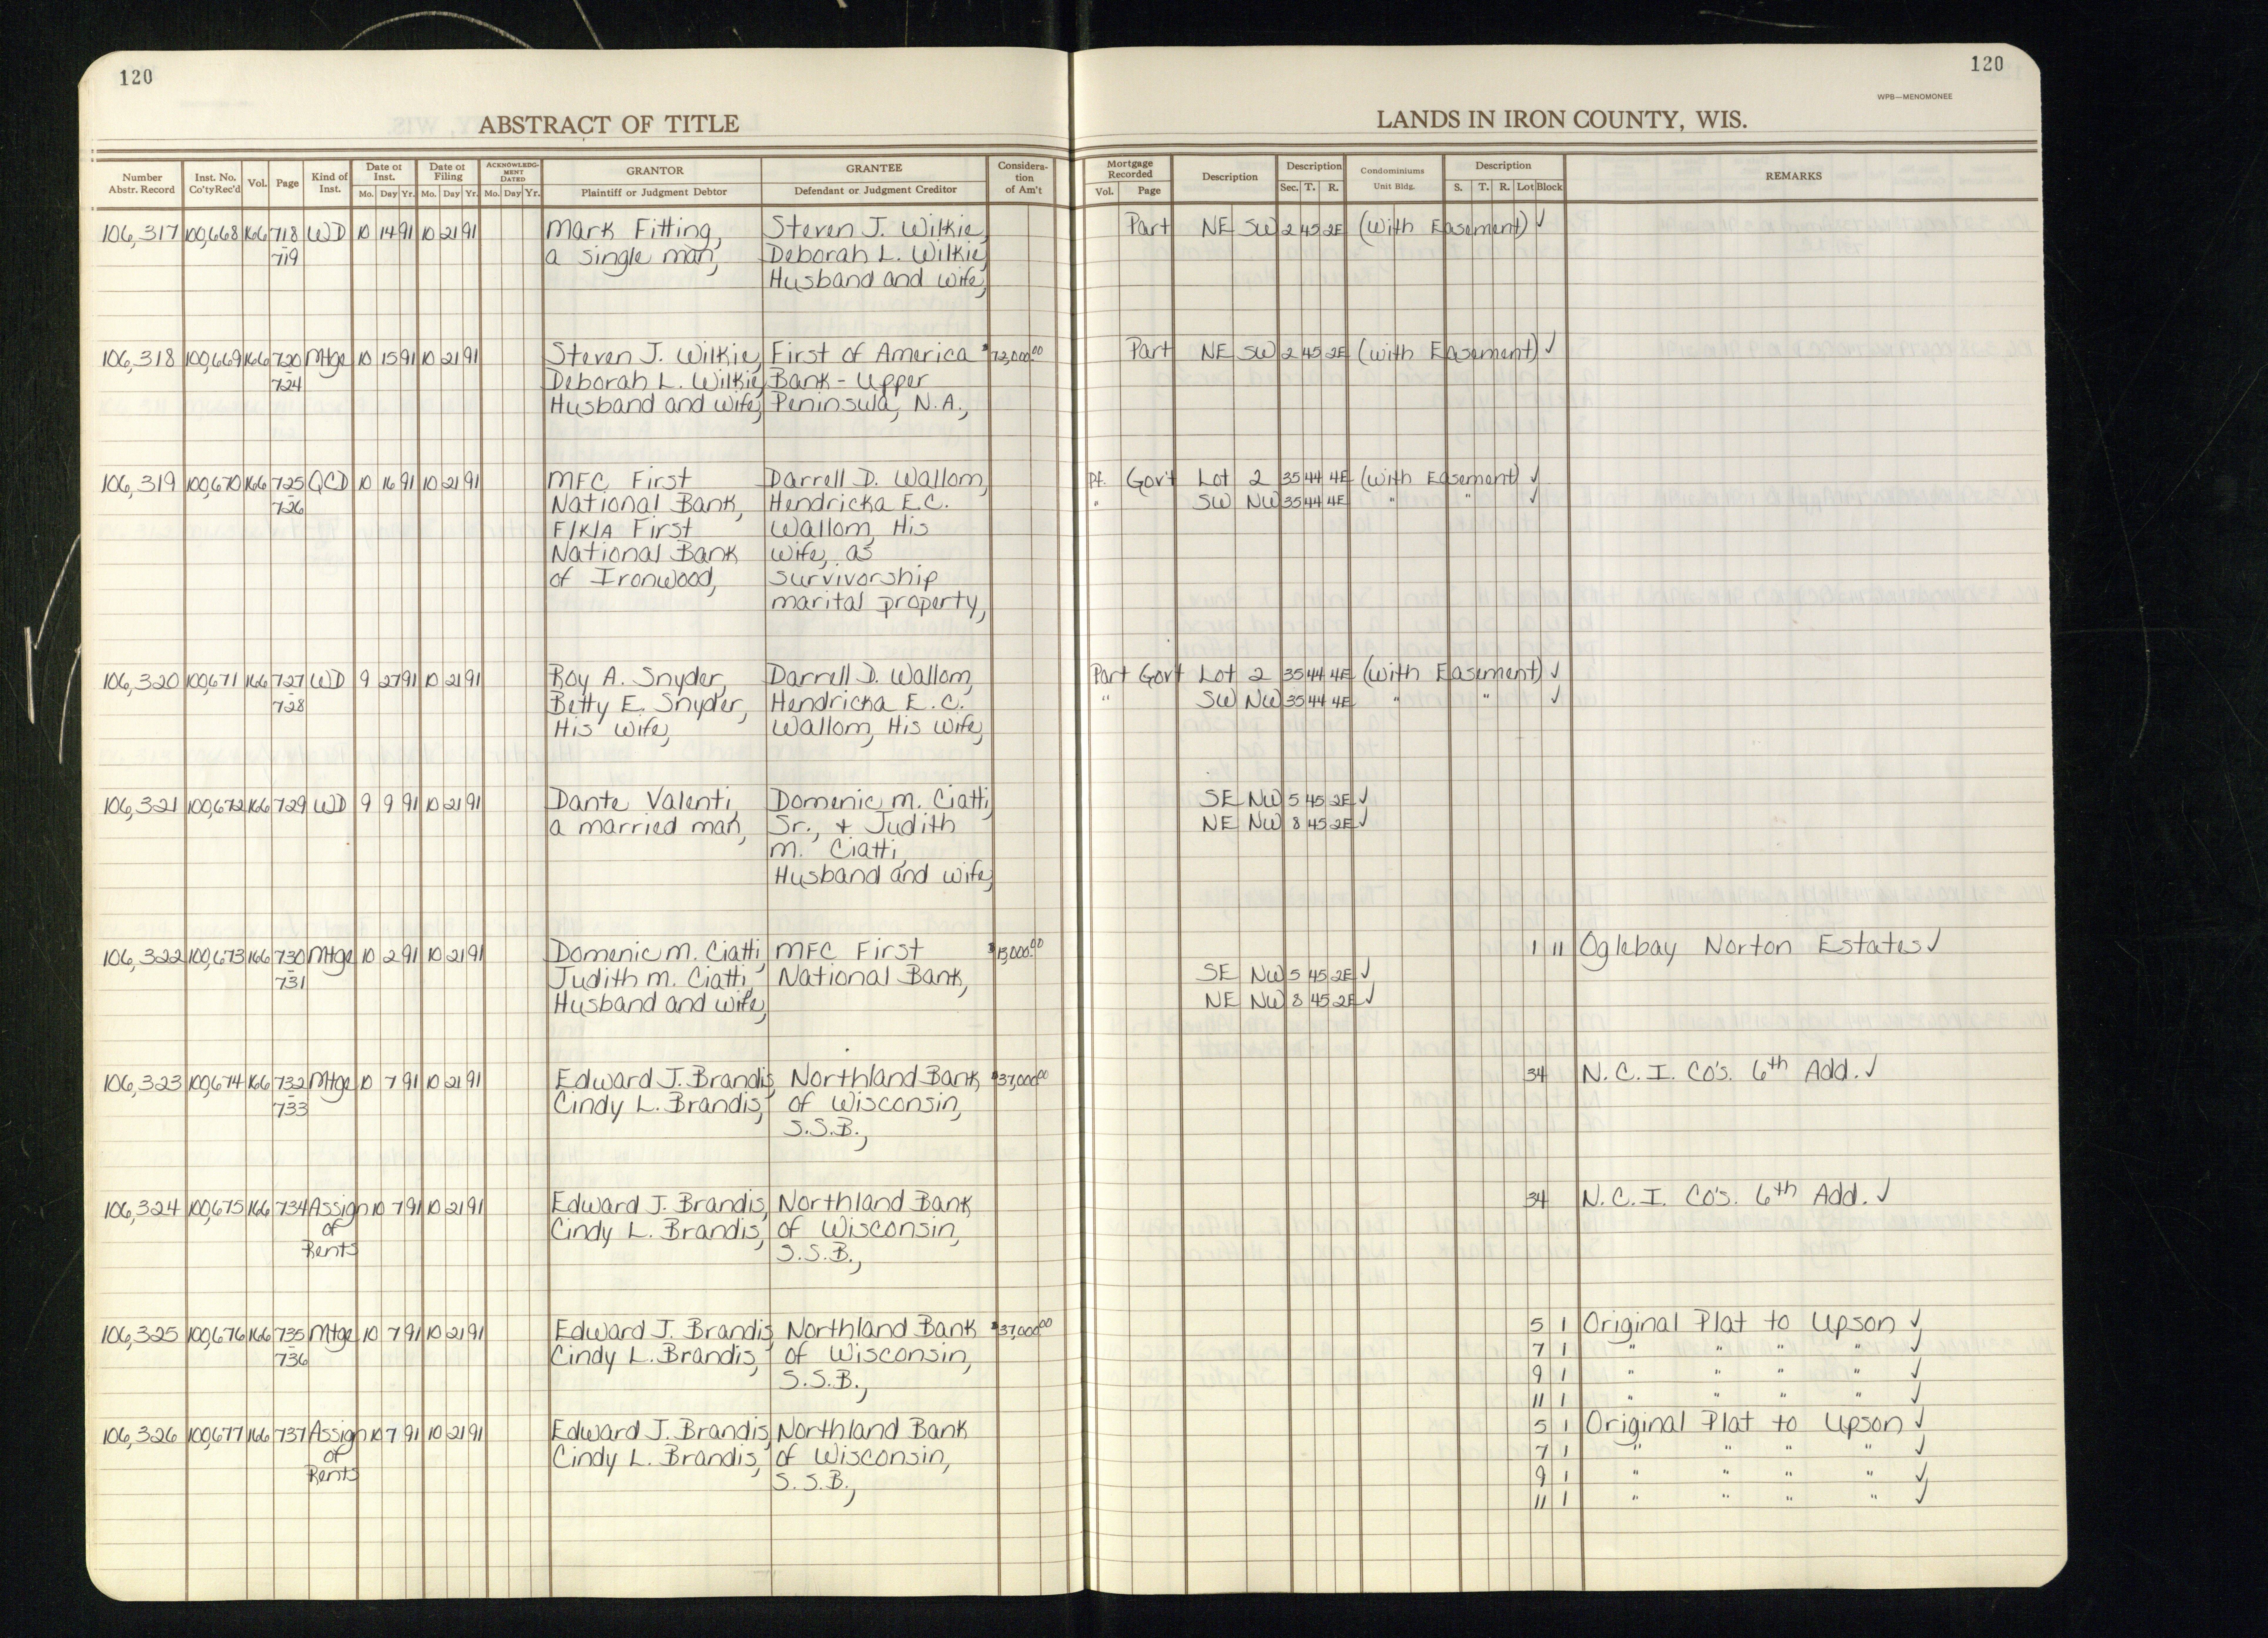 120
120
WPB—MENOMONEE
ABSTRACT OF TITLE
LANDS IN IRON COUNTY, WIS.
Number Abstr. Record Inst. No. Co'ty Rec'd Vol. Page Kind of Inst. Date of Inst. Mo. Day Yr. Date of Filing Mo. Day Yr. ACKNOWLEDGMENT DATED Mo. Day Yr. GRANTOR Plaintiff or Judgment Debtor GRANTEE Defendant or Judgment Creditor Consideration of Am't
Mortgage Recorded Vol. Page Description Description Sec. T. R. Condominiums Unit Bldg. Description S. T. R. Lot Block REMARKS
106,317 100,668 166 718 WD 10 14 91 10 21 91 Mark Fitting, Steven J. Wilkie, Part NE SW 2 45 2E (With Easement) ✓
- 719 a single man, Deborah L. Wilkie,
Husband and Wife,
106,318 100,669 166 720 Mtge 10 15 91 10 21 91 Steven J. Wilkie, First of America $72,000.00 Part NE SW 2 45 2E (with Easement) ✓
- 724 Deborah L. Wilkie, Bank - Upper
Husband and Wife, Peninsula, N.A.,
106,319 100,670 166 725 QCD 10 16 91 10 21 91 MFC First Darrell D. Wallom, Pt. Gov't Lot 2 35 44 4E (with Easement) ✓
- 726 National Bank, Hendricka E.C. " SW NW 35 44 4E " " ✓
F/K/A First Wallom, His
National Bank wife, as
of Ironwood, survivorship
marital property,
106,320 100,671 166 727 WD 9 27 91 10 21 91 Roy A. Snyder, Darrell D. Wallom, Part Gov't Lot 2 35 44 4E (with Easement) ✓
- 728 Betty E. Snyder, Hendricka E.C. " SW NW 35 44 4E " " ✓
His Wife, Wallom, His Wife,
106,321 100,672 166 729 WD 9 9 91 10 21 91 Dante Valenti, Domenic M. Ciatti, SE NW 5 45 2E ✓
a married man, Sr., + Judith NE NW 8 45 2E ✓
M. Ciatti,
Husband and wife,
106,322 100,673 166 730 Mtge 10 2 91 10 21 91 Domenic M. Ciatti, MFC First $15,000.00 1 11 Oglebay Norton Estates ✓
- 731 Judith M. Ciatti, National Bank, SE NW 5 45 2E ✓
Husband and wife, NE NW 8 45 2E ✓
106,323 100,674 166 732 Mtge 10 7 91 10 21 91 Edward J. Brandis, Northland Bank $37,000.00 34 N.C.I. Co's. 6th Add. ✓
- 733 Cindy L. Brandis, of Wisconsin,
S.S.B.,
106,324 100,675 166 734 Assign 10 7 91 10 21 91 Edward J. Brandis, Northland Bank 34 N.C.I. Co's. 6th Add. ✓
of Cindy L. Brandis, of Wisconsin,
Rents S.S.B.,
106,325 100,676 166 735 Mtge 10 7 91 10 21 91 Edward J. Brandis, Northland Bank $37,000.00 5 1 Original Plat to Upson ✓
- 736 Cindy L. Brandis, of Wisconsin, 7 1 " " " " ✓
S.S.B., 9 1 " " " " ✓
11 1 " " " " ✓
106,326 100,677 166 737 Assign 10 7 91 10 21 91 Edward J. Brandis, Northland Bank 5 1 Original Plat to Upson ✓
of Cindy L. Brandis, of Wisconsin, 7 1 " " " " ✓
Rents S.S.B., 9 1 " " " " ✓
11 1 " " " " ✓